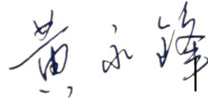 黄永锋